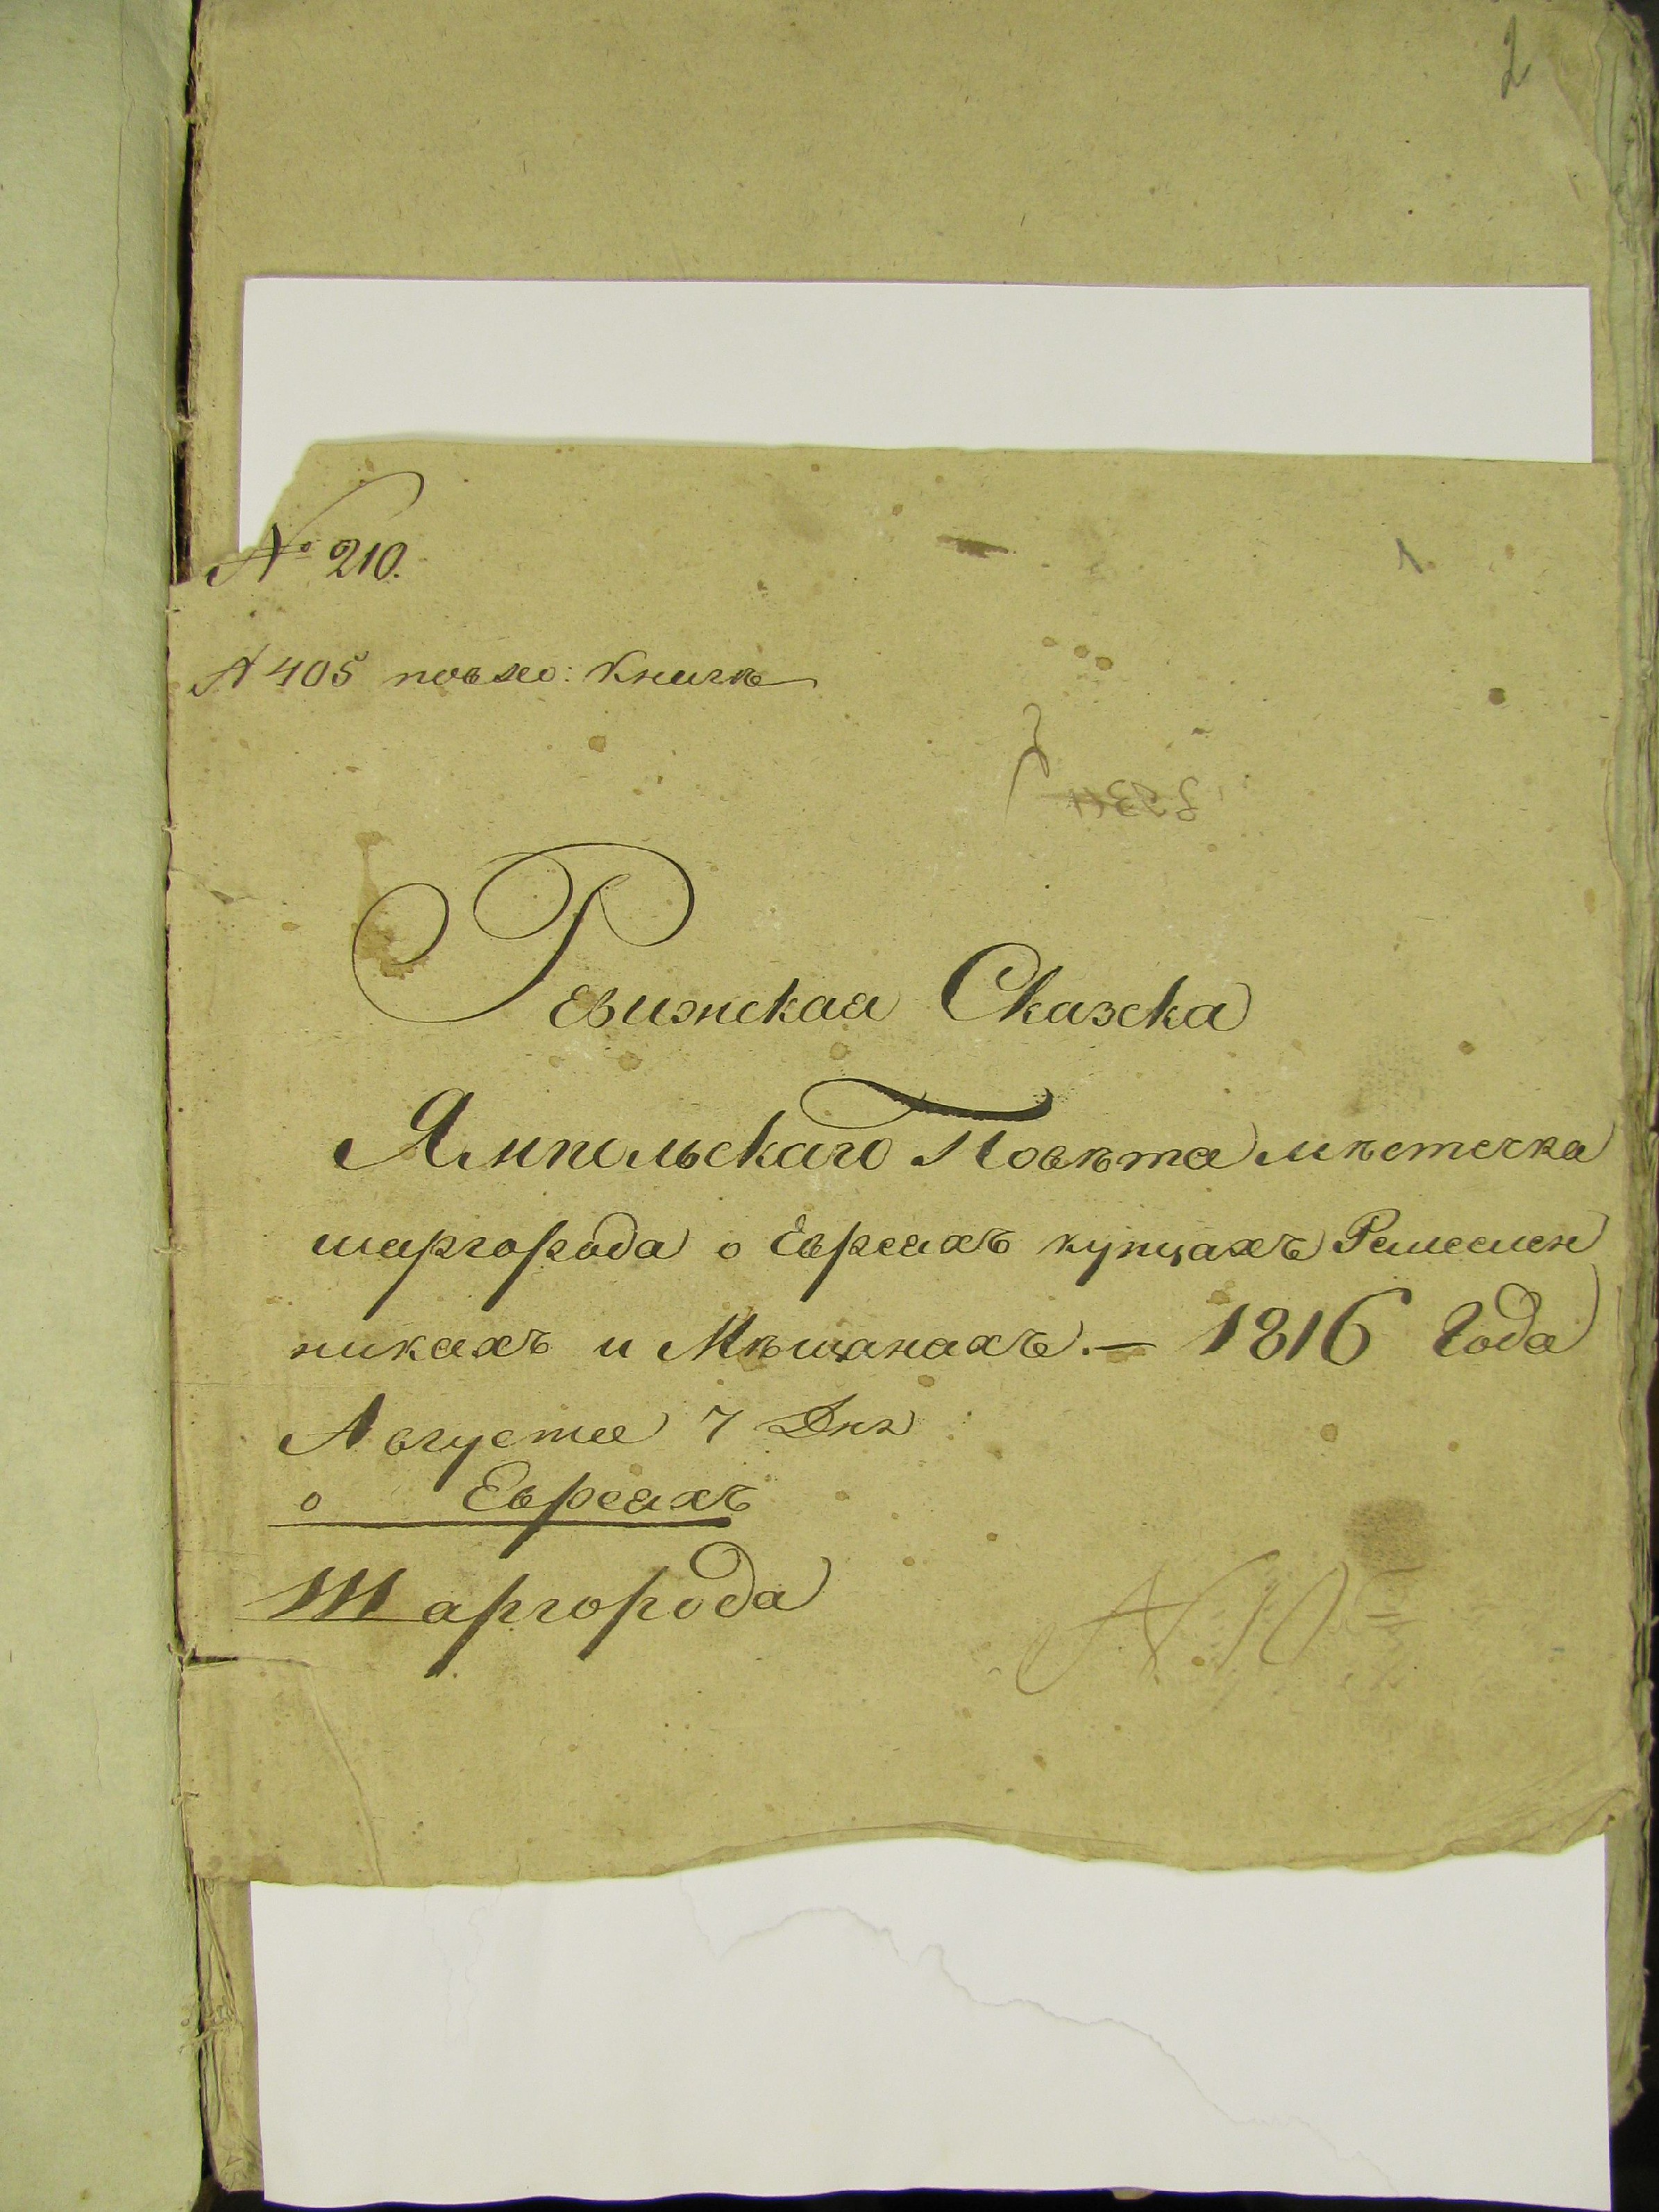 2
№ 210.
1
№ 405 по вхо: Книгѣ
Ревижская Сказска
Ямпольскаго Повѣта мѣстечка
шаргорода о Евреяхъ купцахъ Ремеслен
никахъ и Мѣщанахъ. — 1816 Года
Августа 7 Дня
о Евреяхъ
Шаргорода
№ 10